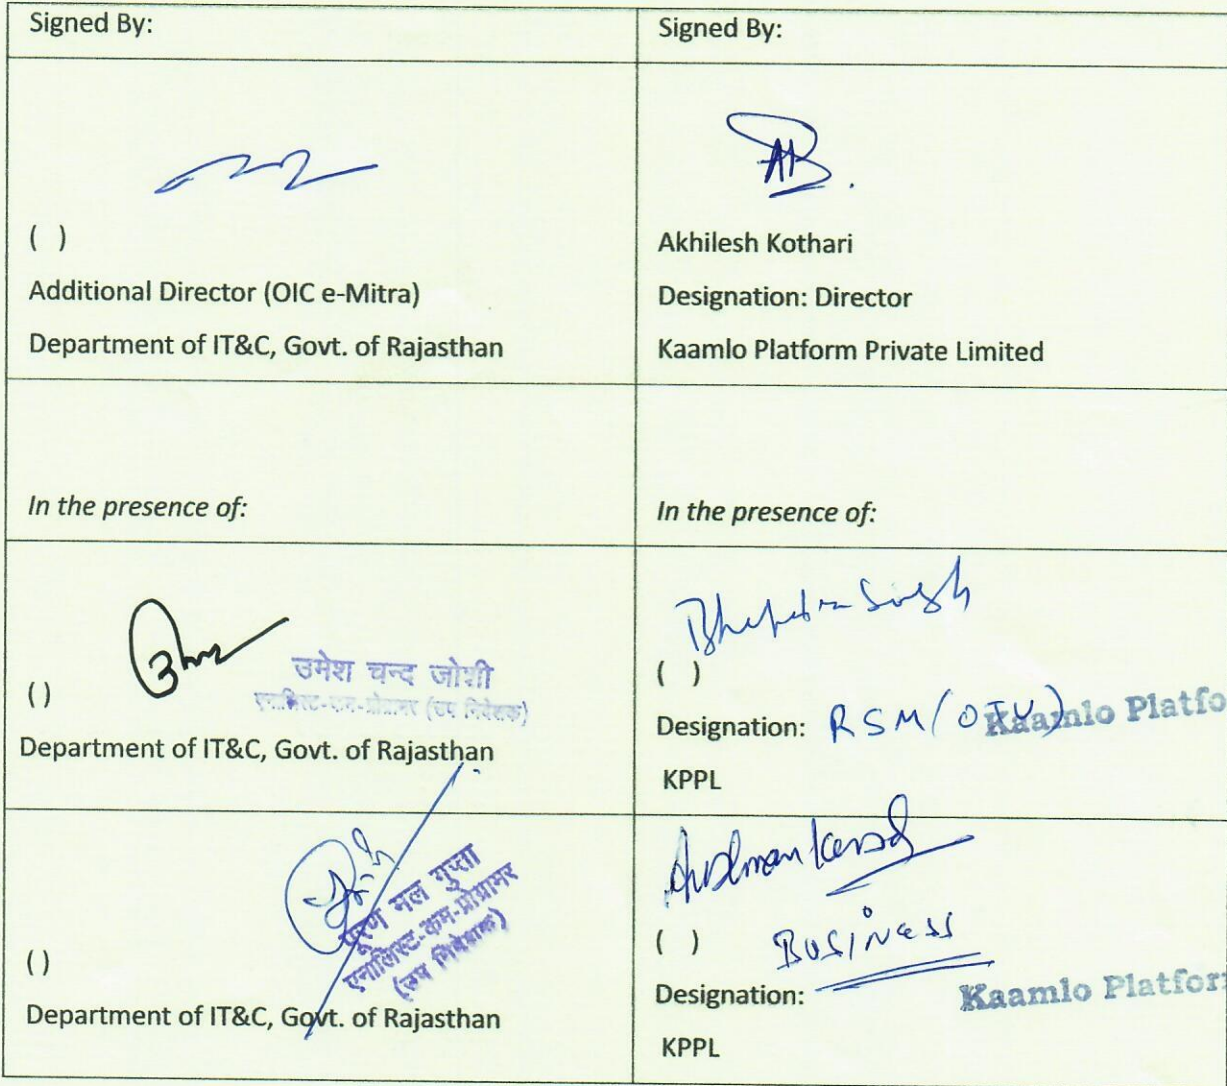 Signed By:
Signed By:
( )
Additional Director (OIC e-Mitra)
Department of IT&C, Govt. of Rajasthan
Akhilesh Kothari
Designation: Director
Kaamlo Platform Private Limited
In the presence of:
In the presence of:
()
उमेश चन्द जोशी
एनालिस्ट-कम-प्रोग्रामर (उप निदेशक)
Department of IT&C, Govt. of Rajasthan
Singh
( )
Designation: RSM
Kaamlo Platfo
KPPL
पूरण मल गुप्ता
एनालिस्ट-कम-प्रोग्रामर
(उप निदेशक)
()
Department of IT&C, Govt. of Rajasthan
( )
Business
Designation:
Kaamlo Platfor
KPPL